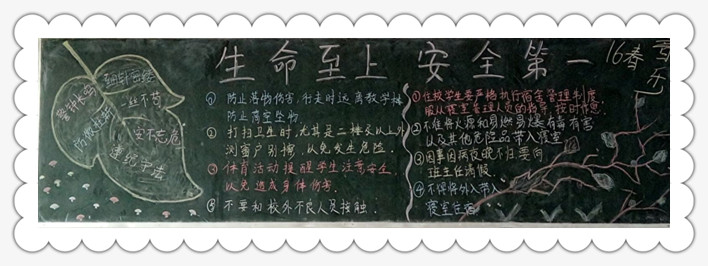 生命至上 安全第一
16春
警钟长鸣
防微杜渐
一丝不苟
安不忘危
遵纪守法
① 防止落物伤害,行走时远离教学楼
防止高空坠物
② 打扫卫生时,尤其是二楼及以上外
测窗户别擦,以免发生危险.
③ 体育活动提醒学生注意安全
以免造成身体伤害.
④ 不要和校外不良人员接触.
①住校学生要严格执行宿舍管理制度
服从寝室管理人员的指导,按时作息.
②不准带火源和易燃易爆有毒有害
以及其他危险品带入寝室
③因事因病夜晚不归要向
班主任请假.
④不得将外人带入
寝室住宿